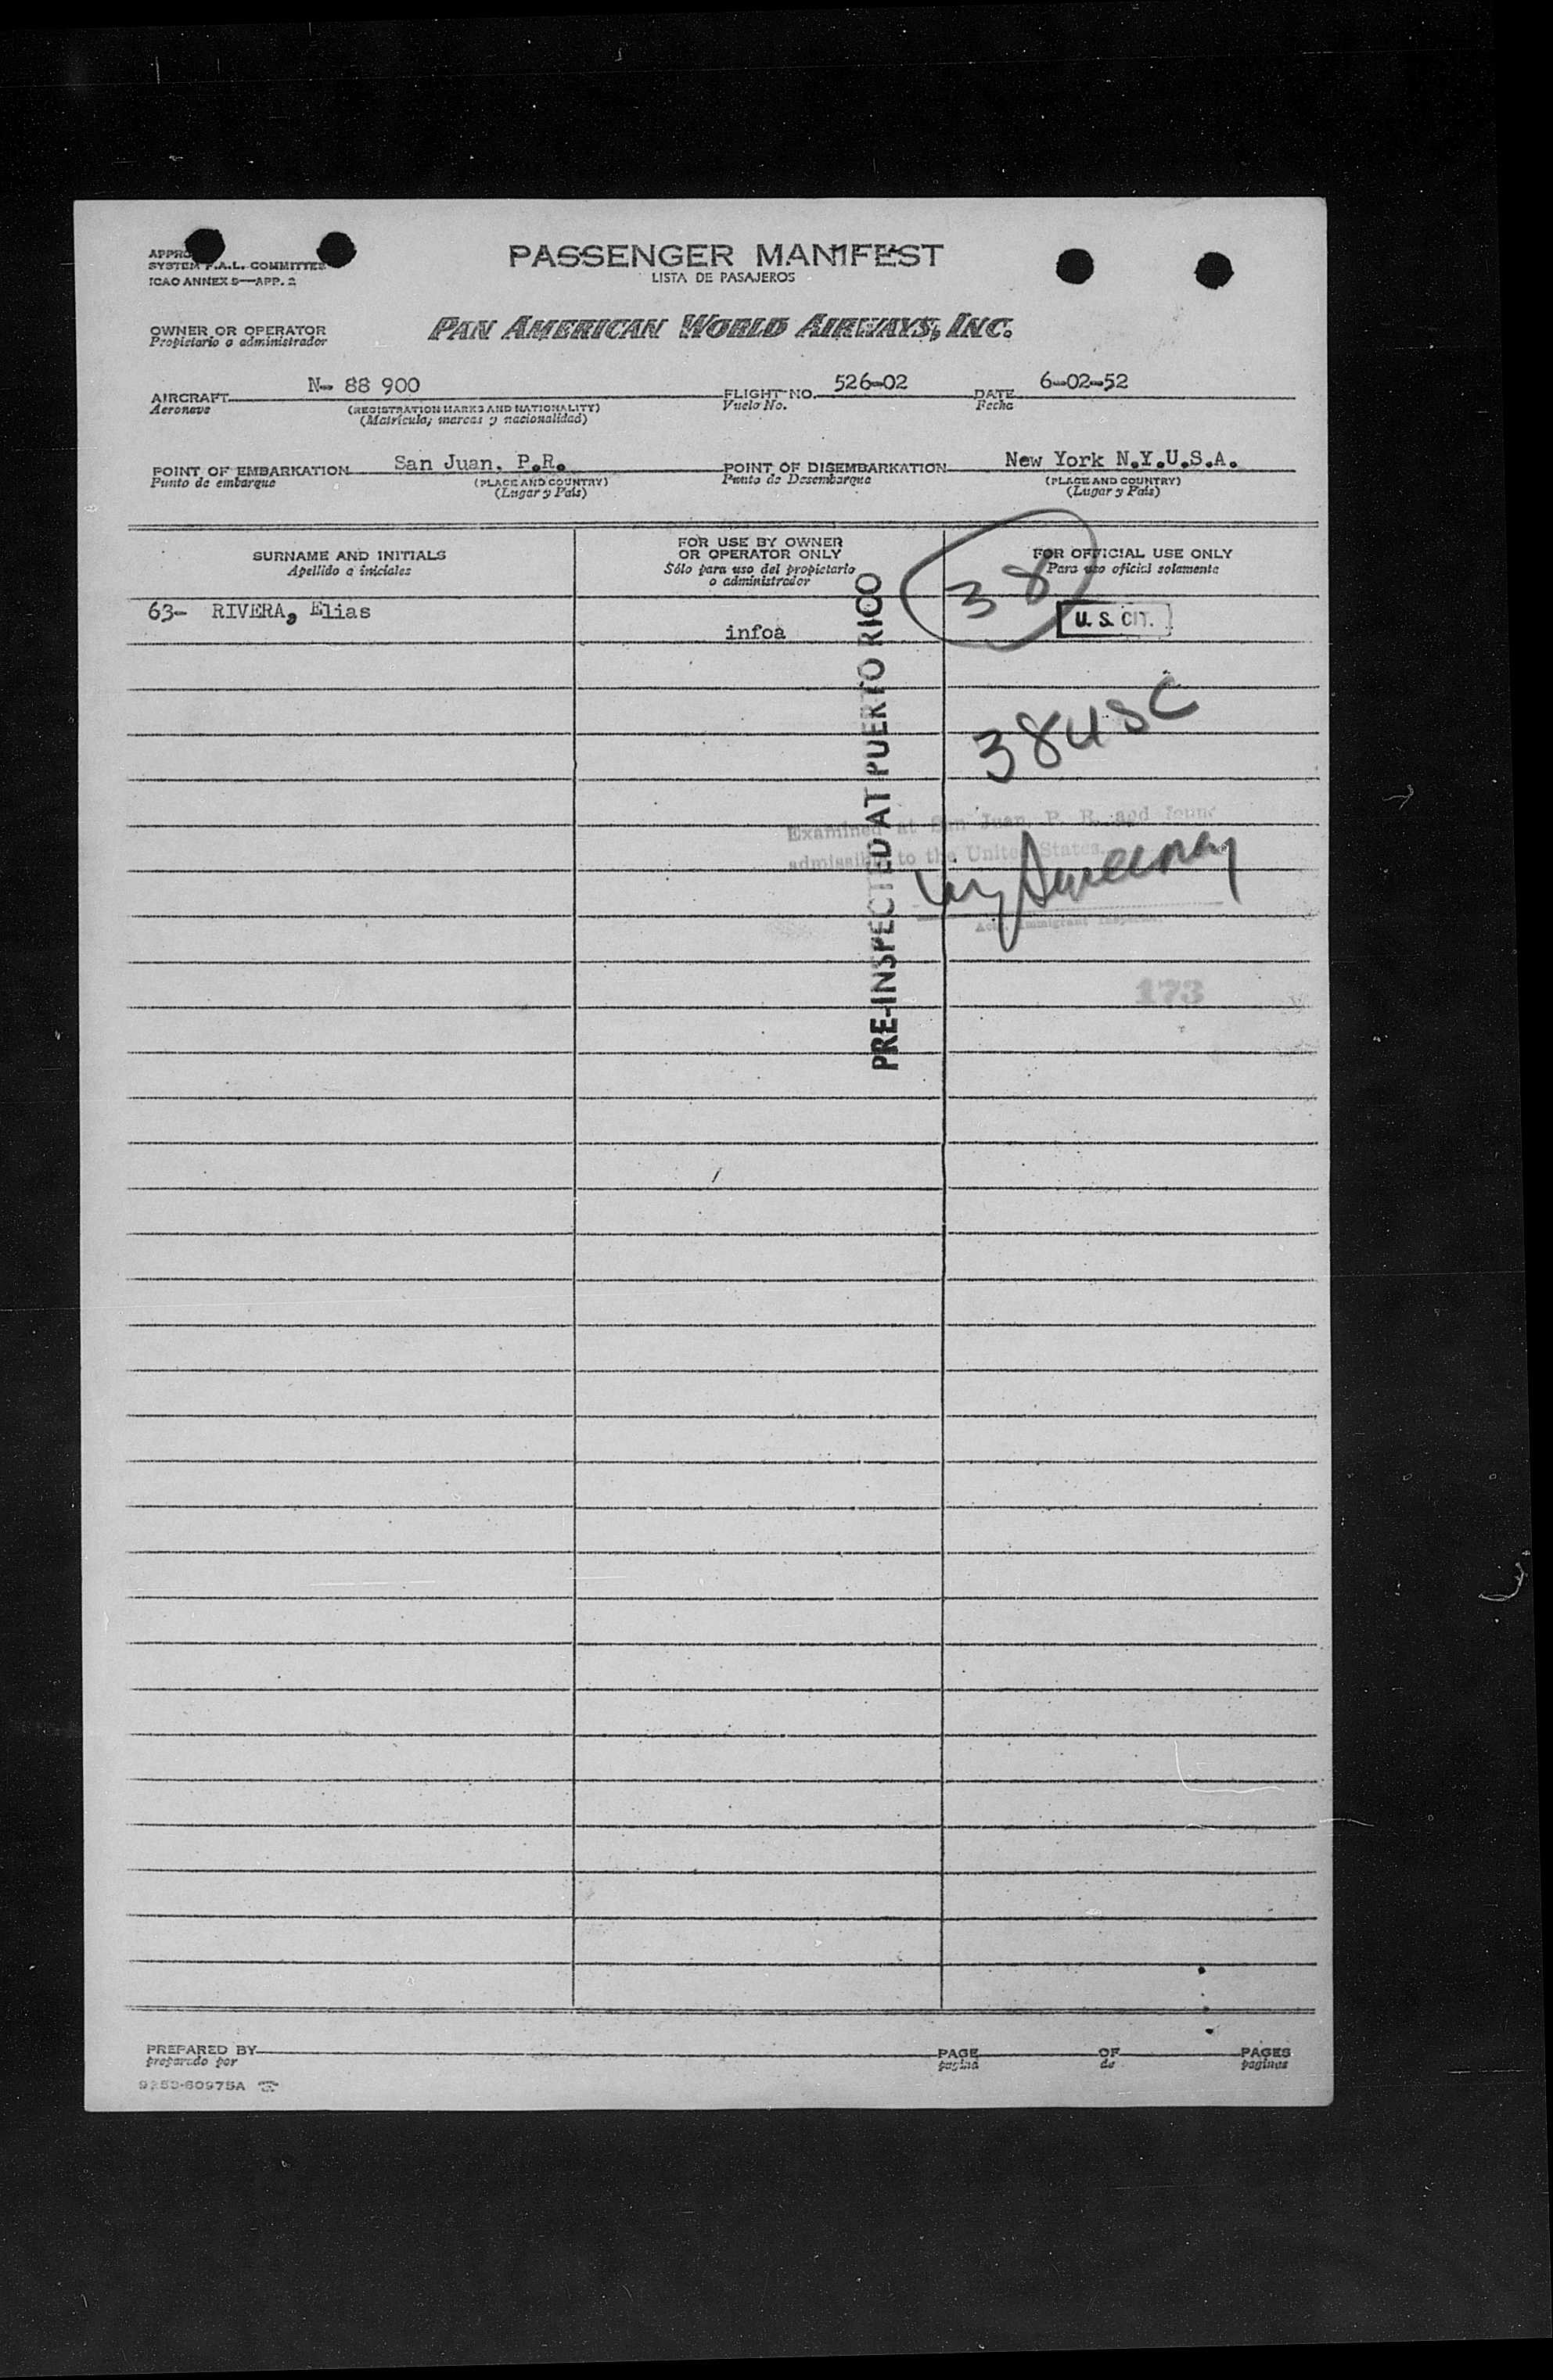 PASSENGER MANIFEST
LISTA DE PASAJEROS
SYSTEM F.A.L. COMMITTEE
ICAO ANNEX 9—APP. 2
OWNER OR OPERATOR
Propietario o administrador
PAN AMERICAN WORLD AIRWAYS, INC.
AIRCRAFT N- 88 900 FLIGHT NO. 526-02 DATE 6-02-52
Aeronave (REGISTRATION MARKS AND NATIONALITY) Vuelo No. Fecha
(Matrícula, marcas y nacionalidad)
POINT OF EMBARKATION San Juan, P.R. POINT OF DISEMBARKATION New York N.Y.U.S.A.
Punto de embarque (PLACE AND COUNTRY) Punto de Desembarque (PLACE AND COUNTRY)
(Lugar y País) (Lugar y País)
SURNAME AND INITIALS
Apellido e iniciales
FOR USE BY OWNER
OR OPERATOR ONLY
Sólo para uso del propietario
o administrador
FOR OFFICIAL USE ONLY
Para uso oficial solamente
38
63- RIVERA, Elias
infoa
U. S. CIT.
38 USC
PRE-INSPECTED AT PUERTO RICO
Examined at San Juan, P. R. and found
admissible to the United States.
Sweeney
Immigrant
173
PREPARED BY PAGE OF PAGES
preparado por pagina de paginas